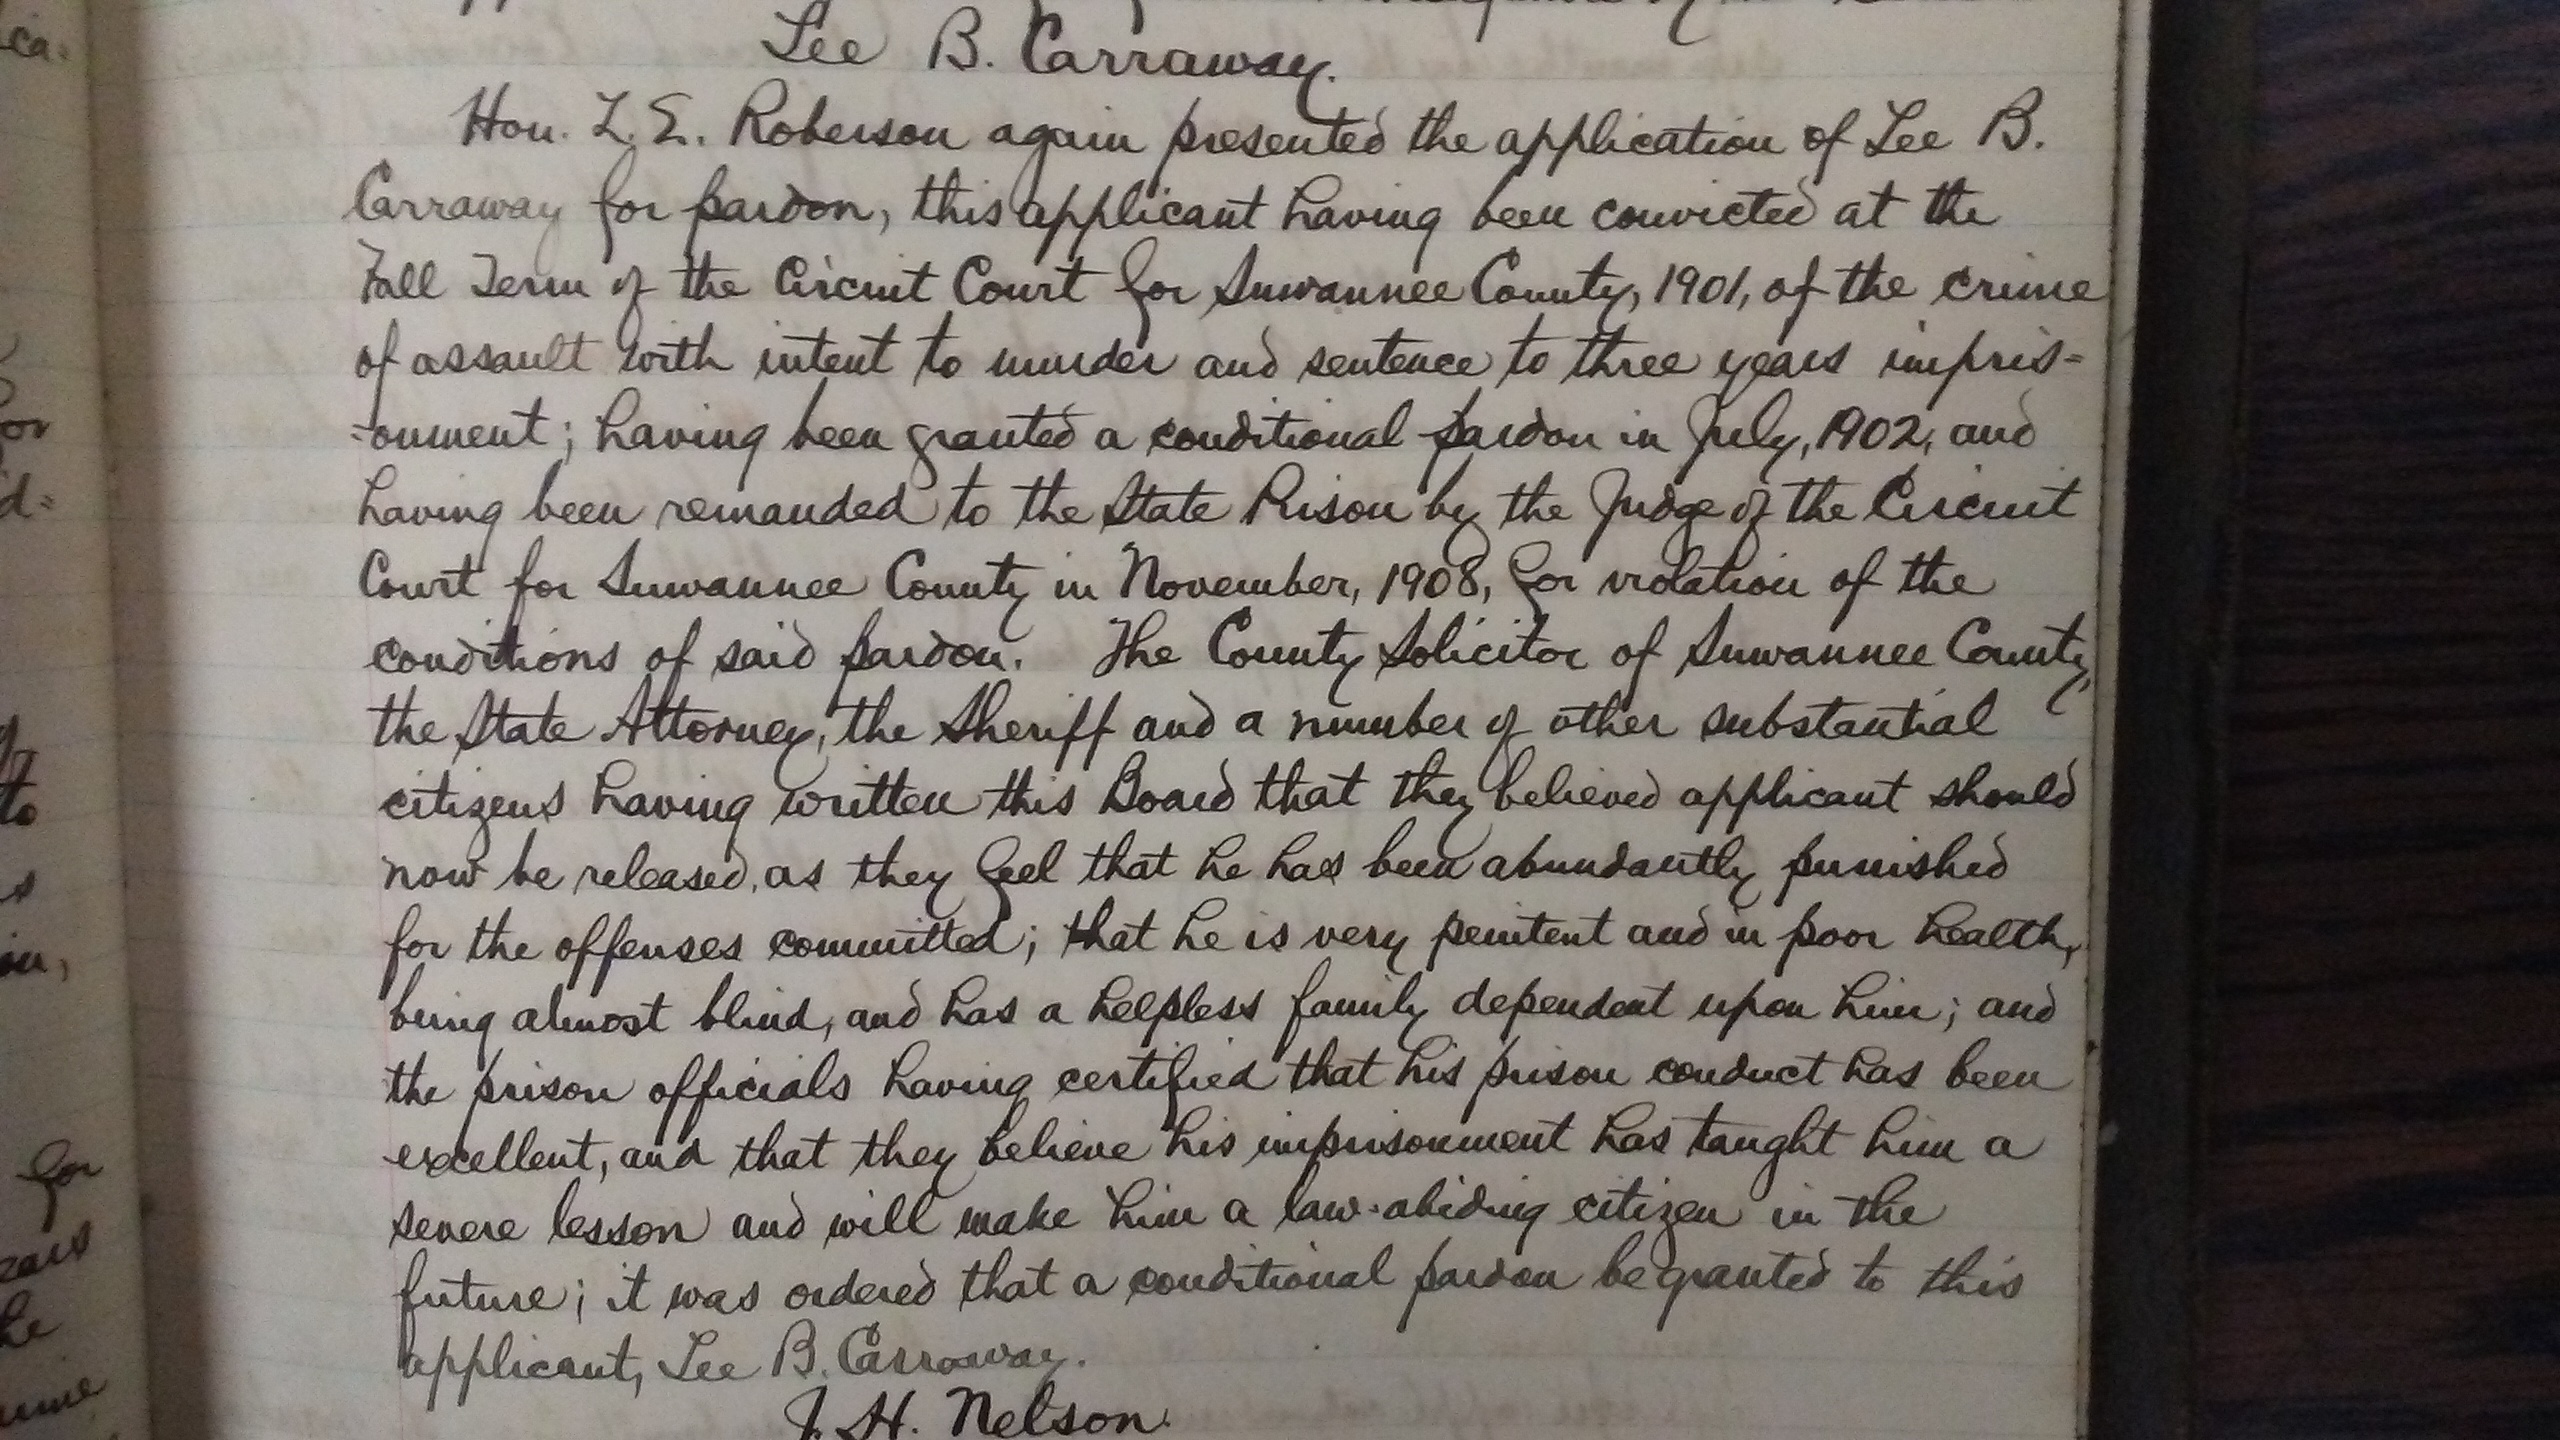 Lee B. Carraway.
Hon. L. E. Roberson again presented the application of Lee B.
Carraway for pardon, this applicant having been convicted at the
Fall Term of the Circuit Court for Suwannee County, 1901, of the crime
of assault with intent to murder and sentence to three years impris=
=onment; having been granted a conditional pardon in July, 1902, and
having been remanded to the State Prison by the Judge of the Circuit
Court for Suwannee County in November, 1908, for violation of the
conditions of said pardon. The County Solicitor of Suwannee County,
the State Attorney, the Sheriff and a number of other substantial
citizens having written this Board that they believed applicant should
now be released, as they feel that he has been abundantly punished
for the offenses committed; that he is very penitent and in poor health,
being almost blind, and has a helpless family dependent upon him; and
the prison officials having certified that his prison conduct has been
excellent, and that they believe his imprisonment has taught him a
severe lesson and will make him a law-abiding citizen in the
future; it was ordered that a conditional pardon be granted to this
applicant, Lee B. Carraway.
J. H. Nelson